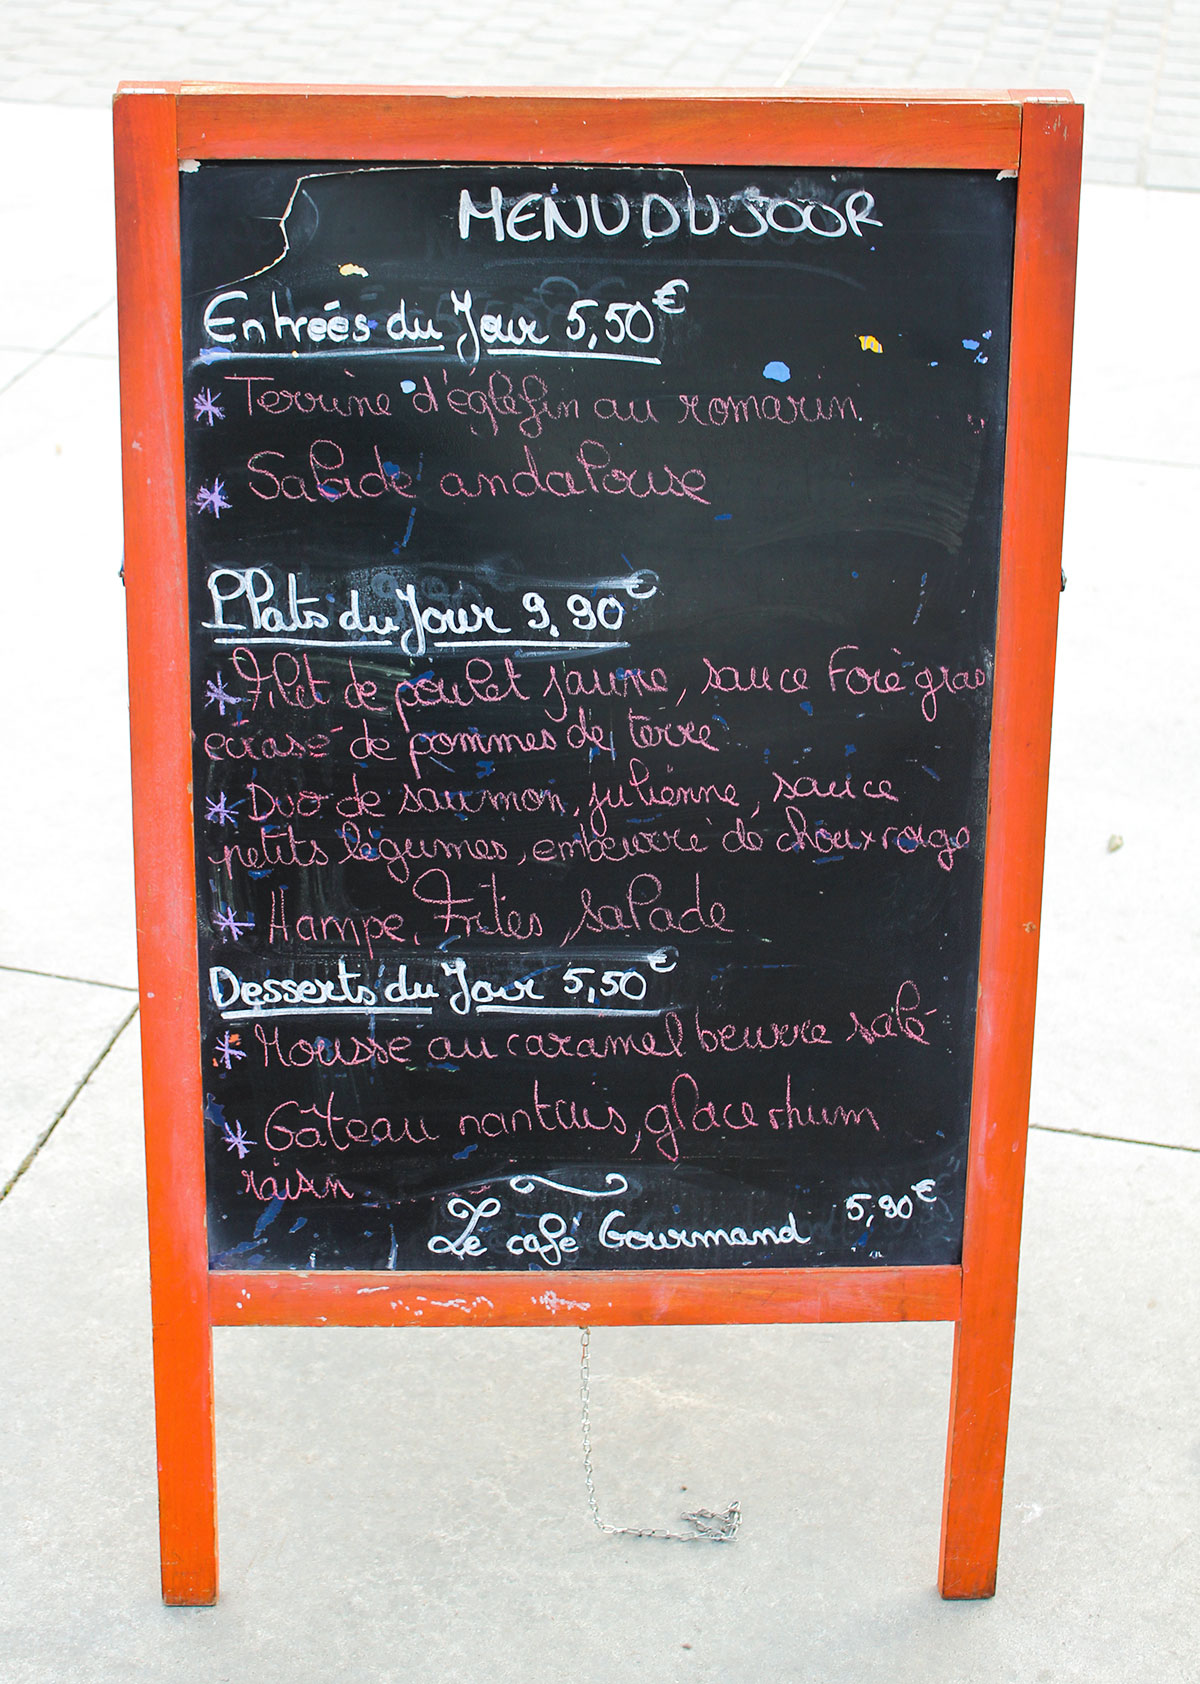 MENU DU JOUR
Entrées du Jour 5,50€
* Terrine d'églefin au romarin
* Salade andalouse
Plats du Jour 9,90€
* Filet de poulet jaune, sauce Foie gras
ecrasé de pommes de terre
* Duo de saumon, julienne, sauce
petits légumes, embeurré de choux rouge
* Hampe, Frites, salade
Desserts du Jour 5,50€
* Mousse au caramel beurre salé
* Gâteau nantais, glace rhum
raisin
Le café Gourmand 5,90€